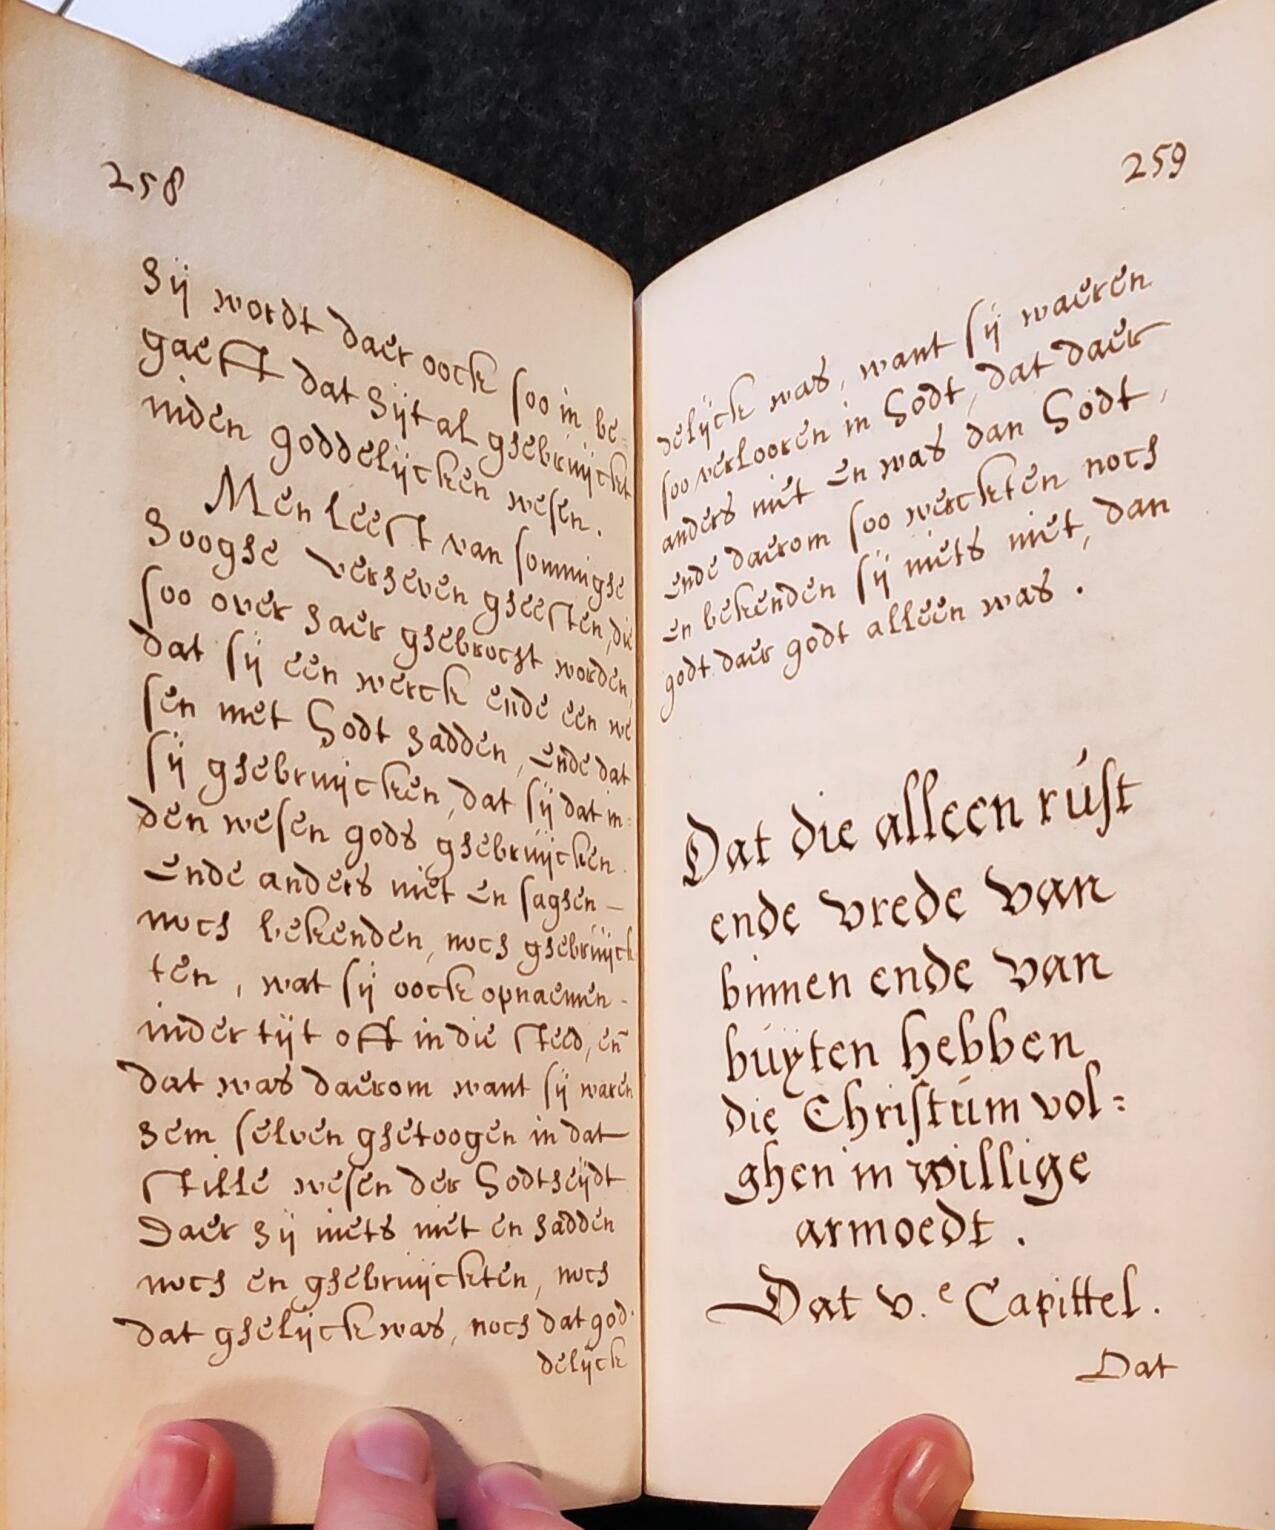 258
hij wordt daer oock soo in be=
gaeft dat hijt al ghebruijckt
inden goddelijcken wesen.
Men leest van sommighe
hooghe verheven gheesten, die
soo over haer ghebrocht worden,
dat sij een werck ende een we
sen met Godt hadden, ende dat
sij ghebruijcken, dat sij dat in=
den wesen gods ghebruijcken.
Ende anders niet en saghen
noch bekenden, noch ghebruijck
ten, wat sij oock opnaemen
inder tijt oft in die steed, en̄
dat was daerom want sij waren
hem selven ghetoogen in dat
stille wesen der Godtheijdt
Daer hij niets niet en hadden
noch en ghebruijckten, noch
dat ghelijck was, noch dat god
delijck
259
delijck was, want sij waeren
soo verlooren in Godt, dat daer
anders niet en was dan Godt,
ende daerom soo werckten noch
en bekenden sij niets niet, dan
godt daer godt alleen was.
Dat die alleen rúst
ende vrede van
binnen ende van
búyten hebben
die Christúm vol=
ghen in willige
armoedt.
Dat v.e Capittel.
Dat